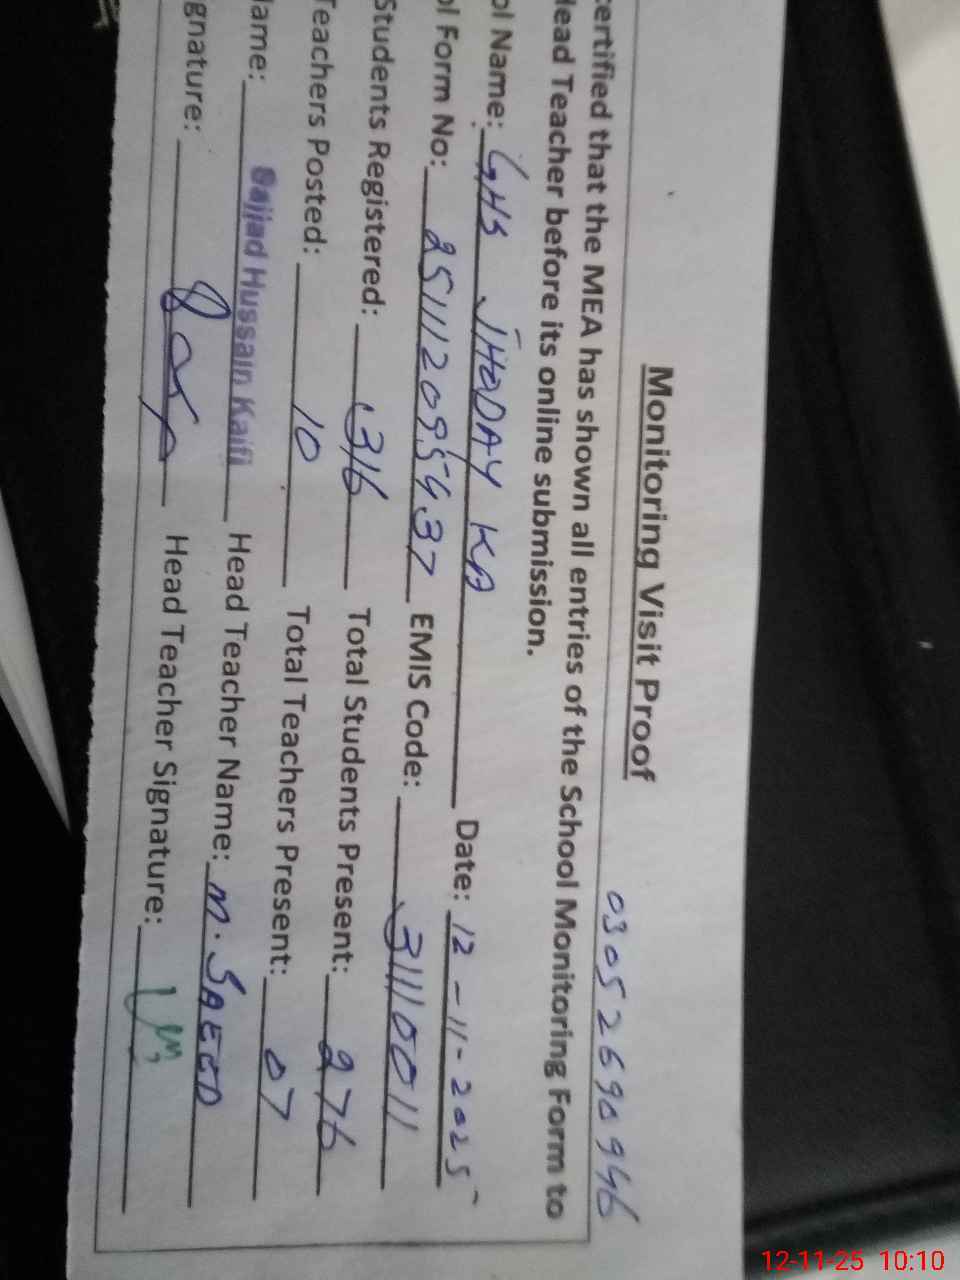 Monitoring Visit Proof
03052690946
certified that the MEA has shown all entries of the School Monitoring Form to
Head Teacher before its online submission.
ol Name: GHS JHODAY KA Date: 12-11-2025
ol Form No: 251112095437 EMIS Code: 31110011
Students Registered: 316 Total Students Present: 276
Teachers Posted: 10 Total Teachers Present: 07
Name: Sajjad Hussain Kaifi Head Teacher Name: M. SAEED
gnature: Head Teacher Signature:
12-11-25 10:10